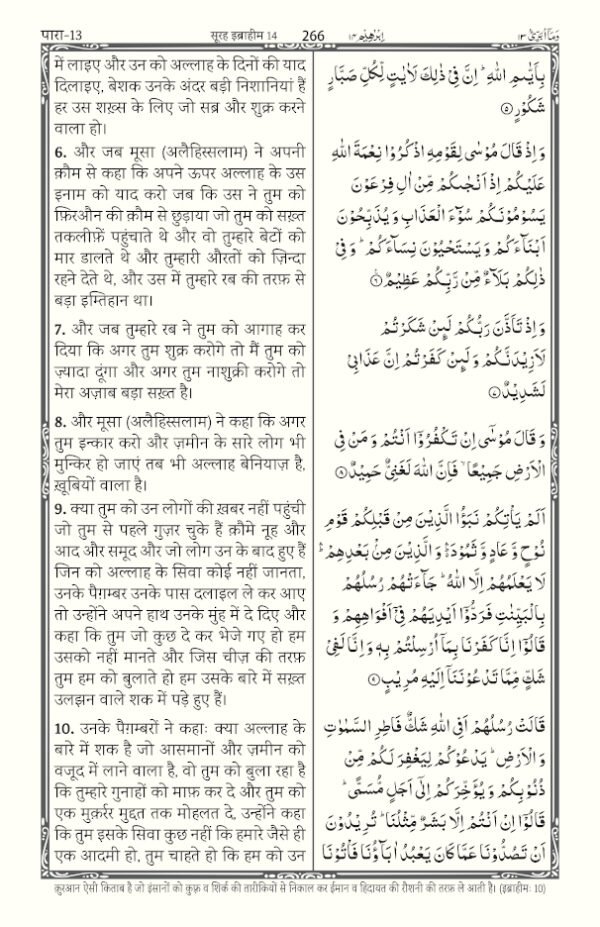 पारा-13 सूरह इब्राहीम 14 266 اِبْرٰهِيْم ١٤ وَمَآ اُبَرِّئُ ١٣
में लाइए और उन को अल्लाह के दिनों की याद
दिलाइए, बेशक उनके अंदर बड़ी निशानियां हैं
हर उस शख़्स के लिए जो सब्र और शुक्र करने
वाला हो।
6. और जब मूसा (अलैहिस्सलाम) ने अपनी
क़ौम से कहा कि अपने ऊपर अल्लाह के उस
इनाम को याद करो जब कि उस ने तुम को
फ़िरऔन की क़ौम से छुड़ाया जो तुम को सख़्त
तकलीफ़ें पहुंचाते थे और वो तुम्हारे बेटों को
मार डालते थे और तुम्हारी औरतों को ज़िन्दा
रहने देते थे, और उस में तुम्हारे रब की तरफ़ से
बड़ा इम्तिहान था।
7. और जब तुम्हारे रब ने तुम को आगाह कर
दिया कि अगर तुम शुक्र करोगे तो मैं तुम को
ज़्यादा दूंगा और अगर तुम नाशुक्री करोगे तो
मेरा अज़ाब बड़ा सख़्त है।
8. और मूसा (अलैहिस्सलाम) ने कहा कि अगर
तुम इन्कार करो और ज़मीन के सारे लोग भी
मुन्किर हो जाएं तब भी अल्लाह बेनियाज़ है,
ख़ूबियों वाला है।
9. क्या तुम को उन लोगों की ख़बर नहीं पहुंची
जो तुम से पहले गुज़र चुके हैं क़ौमे नूह और
आद और समूद और जो लोग उन के बाद हुए हैं
जिन को अल्लाह के सिवा कोई नहीं जानता,
उनके पैग़म्बर उनके पास दलाइल ले कर आए
तो उन्होंने अपने हाथ उनके मुंह में दे दिए और
कहा कि तुम जो कुछ दे कर भेजे गए हो हम
उसको नहीं मानते और जिस चीज़ की तरफ़
तुम हम को बुलाते हो हम उसके बारे में सख़्त
उलझन वाले शक में पड़े हुए हैं।
10. उनके पैग़म्बरों ने कहाः क्या अल्लाह के
बारे में शक है जो आसमानों और ज़मीन को
वजूद में लाने वाला है, वो तुम को बुला रहा है
कि तुम्हारे गुनाहों को माफ़ कर दे और तुम को
एक मुक़र्रर मुद्दत तक मोहलत दे, उन्होंने कहा
कि तुम इसके सिवा कुछ नहीं कि हमारे जैसे ही
एक आदमी हो, तुम चाहते हो कि हम को उन
بِاَيّٰىمِ اللّٰهِ ؕ اِنَّ فِيْ ذٰلِكَ لَاٰيٰتٍ لِّكُلِّ صَبَّارٍ
شَكُوْرٍ ۝٥
وَ اِذْ قَالَ مُوْسٰى لِقَوْمِهِ اذْكُرُوْا نِعْمَةَ اللّٰهِ
عَلَيْكُمْ اِذْ اَنْجٰىكُمْ مِّنْ اٰلِ فِرْعَوْنَ
يَسُوْمُوْنَكُمْ سُوْٓءَ الْعَذَابِ وَ يُذَبِّحُوْنَ
اَبْنَآءَكُمْ وَ يَسْتَحْيُوْنَ نِسَآءَكُمْ ؕ وَ فِيْ
ذٰلِكُمْ بَلَآءٌ مِّنْ رَّبِّكُمْ عَظِيْمٌ ۝٦
وَ اِذْ تَاَذَّنَ رَبُّكُمْ لَىِٕنْ شَكَرْتُمْ
لَاَزِيْدَنَّكُمْ وَ لَىِٕنْ كَفَرْتُمْ اِنَّ عَذَابِيْ
لَشَدِيْدٌ ۝٧
وَ قَالَ مُوْسٰۤى اِنْ تَكْفُرُوْۤا اَنْتُمْ وَ مَنْ فِي
الْاَرْضِ جَمِيْعًا ۙ فَاِنَّ اللّٰهَ لَغَنِيٌّ حَمِيْدٌ ۝٨
اَلَمْ يَاْتِكُمْ نَبَؤُا الَّذِيْنَ مِنْ قَبْلِكُمْ قَوْمِ
نُوْحٍ وَّ عَادٍ وَّ ثَمُوْدَ ۛ۬ؕ وَ الَّذِيْنَ مِنْۢ بَعْدِهِمْ ۛؕ
لَا يَعْلَمُهُمْ اِلَّا اللّٰهُ ؕ جَآءَتْهُمْ رُسُلُهُمْ
بِالْبَيِّنٰتِ فَرَدُّوْۤا اَيْدِيَهُمْ فِيْۤ اَفْوَاهِهِمْ وَ
قَالُوْۤا اِنَّا كَفَرْنَا بِمَاۤ اُرْسِلْتُمْ بِهٖ وَ اِنَّا لَفِيْ
شَكٍّ مِّمَّا تَدْعُوْنَنَاۤ اِلَيْهِ مُرِيْبٍ ۝٩
قَالَتْ رُسُلُهُمْ اَفِي اللّٰهِ شَكٌّ فَاطِرِ السَّمٰوٰتِ
وَ الْاَرْضِ ؕ يَدْعُوْكُمْ لِيَغْفِرَ لَكُمْ مِّنْ
ذُنُوْبِكُمْ وَ يُؤَخِّرَكُمْ اِلٰۤى اَجَلٍ مُّسَمًّى ؕ
قَالُوْۤا اِنْ اَنْتُمْ اِلَّا بَشَرٌ مِّثْلُنَا ؕ تُرِيْدُوْنَ
اَنْ تَصُدُّوْنَا عَمَّا كَانَ يَعْبُدُ اٰبَآؤُنَا فَاْتُوْنَا
क़ुरआन ऐसी किताब है जो इंसानों को कुफ़्र व शिर्क की तारीकियों से निकाल कर ईमान व हिदायत की रौशनी की तरफ़ ले आती है। (इब्राहीमः 10)